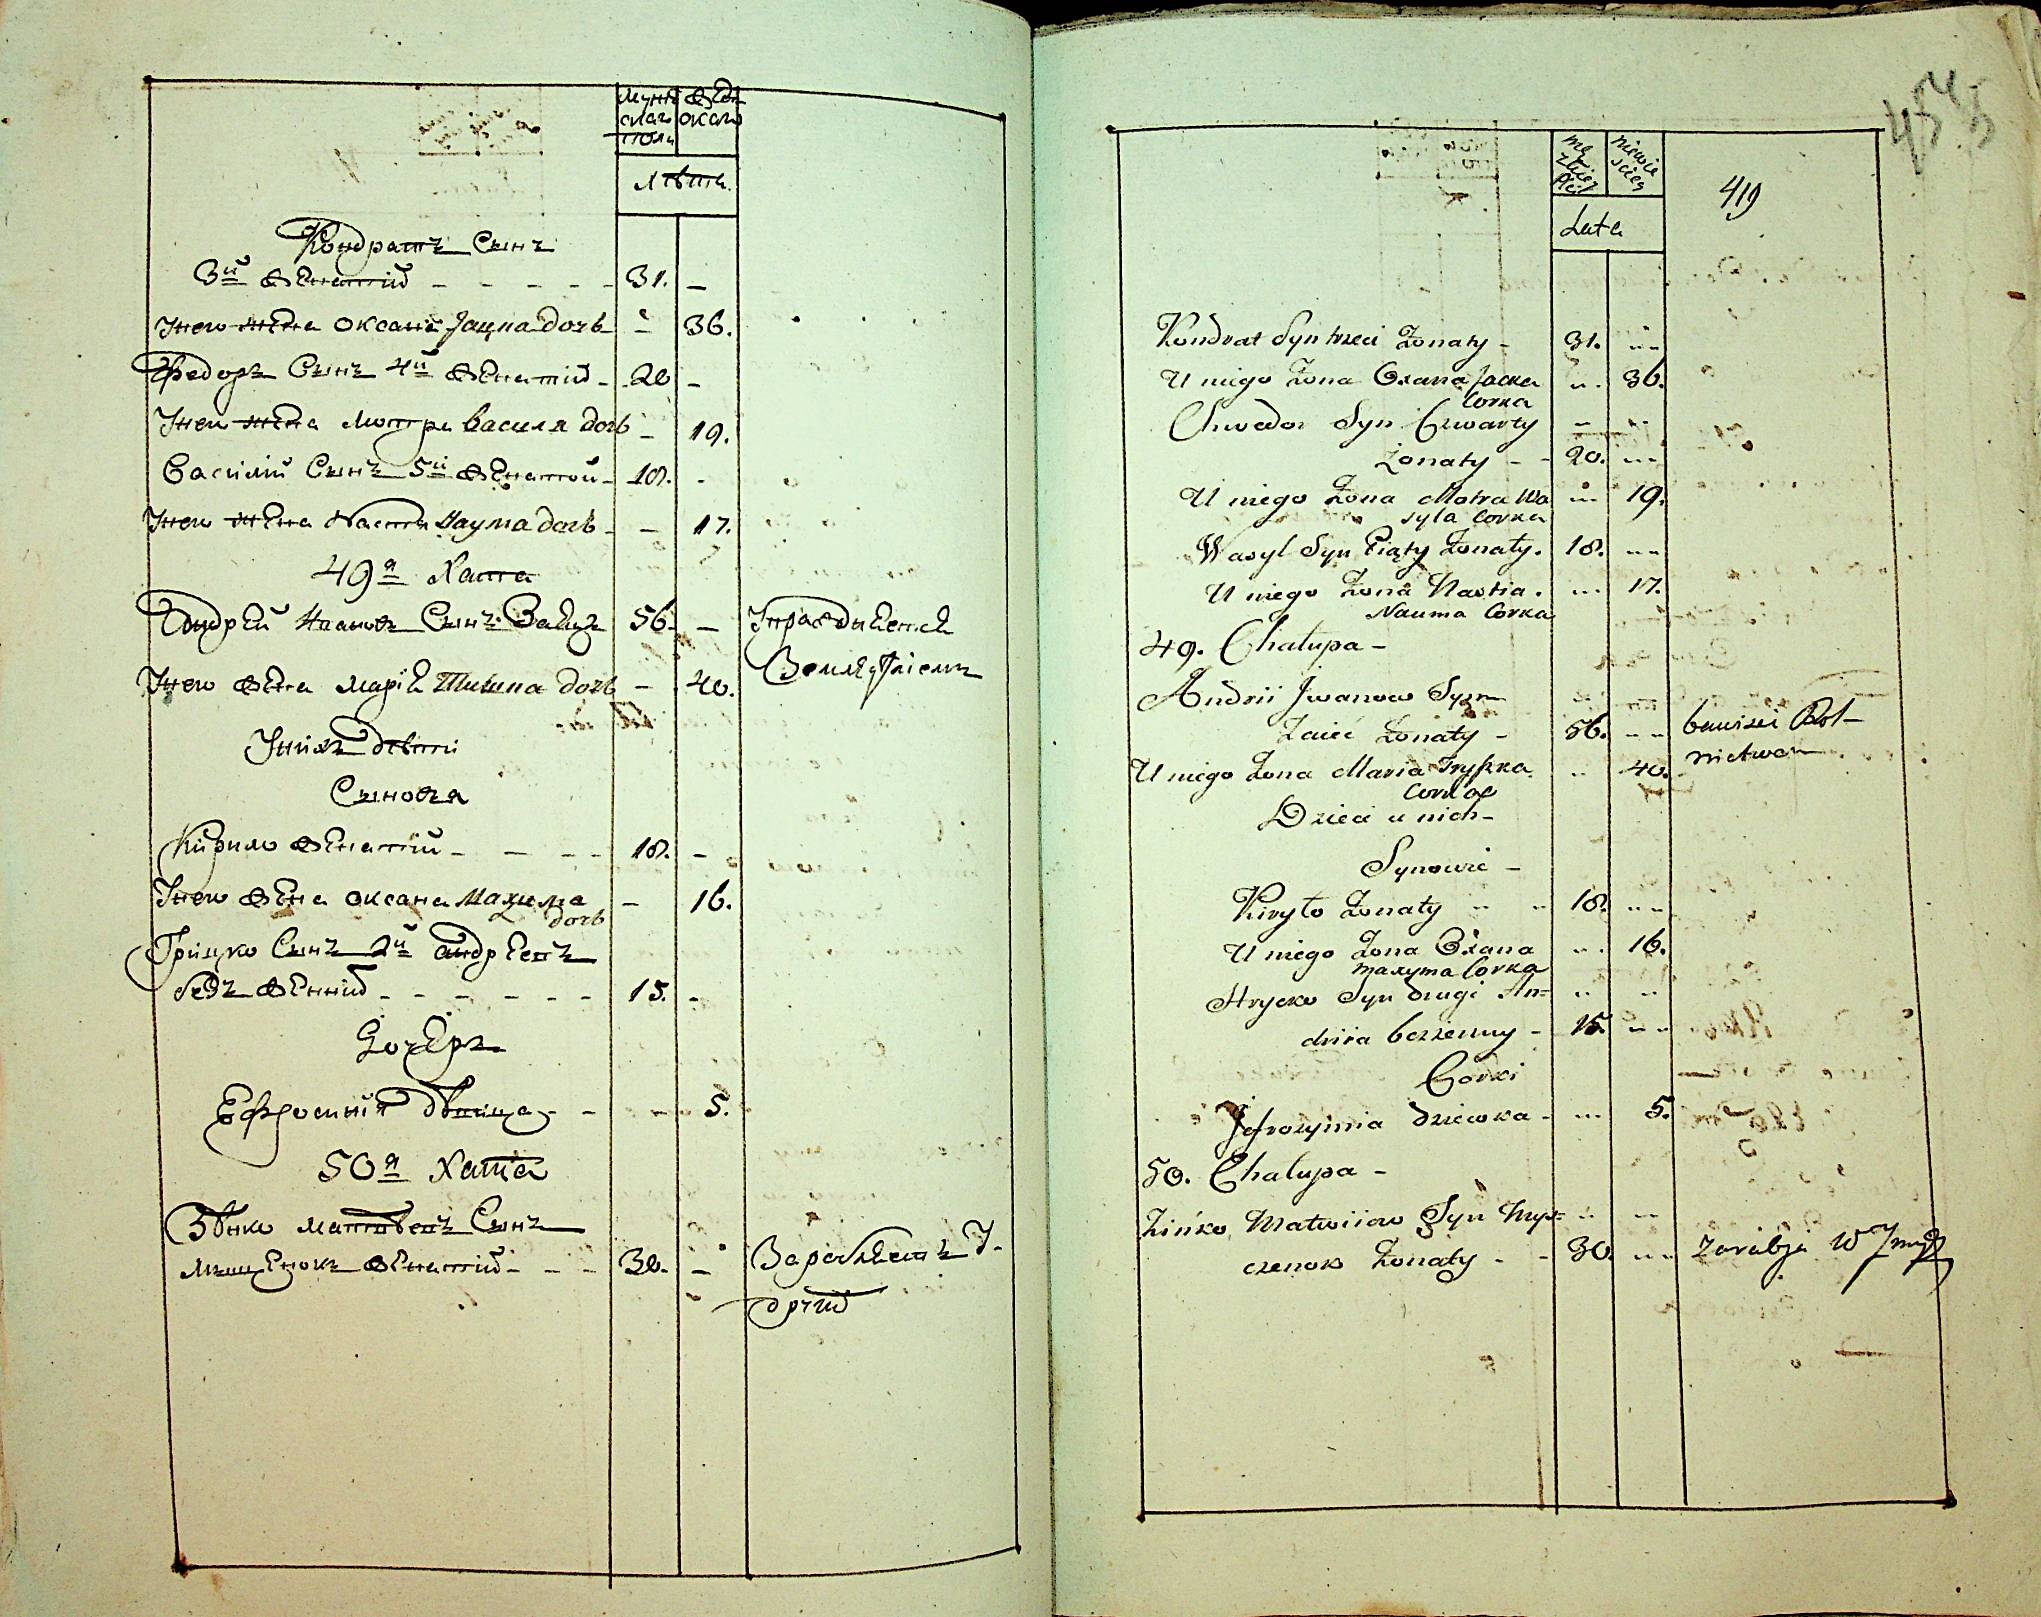 Мужс Женс
скаго скаго
полу
Лѣта
Кондратъ Сынъ
3й Женатій - - - - - 31. -
Унего жена Оксана Яцка дочь - 36.
Федоръ Сынъ 4й Женатій - 20 -
Унего жена Мотря Василя дочь - 19.
Василій Сынъ 5й Женатой - 18. -
Унего жена Настя Наума дочь - - 17.
49я Хата
Андрей Ивановъ Сынъ Заецъ 56. -
Унего жена Марія Тишка дочь - 40.
Унихъ дѣти
Сыновья
Кирило Женатій - - - - 18. -
Унего жена Оксана Махима - 16.
дочь
Грицко Сынъ 2й Андреевъ
безъ Женній - - - - - - 15. -
Дочерь
Ефросинія дѣвица - - - 5.
50я Хата
Зѣнко Матвѣевъ Сынъ
Женатій - - - 30. -
mę niewie
zkiey sciey
Płci
Lata
419
Kondrat Syn trzeci Żonaty - 31. --
U niego Żona Oxana Jacka -- 36.
Corka
Chwedor Syn Czwarty -- --
Żonaty - - 20. --
U niego Żona Motra Wa -- 19.
syla Corka
Wasyl Syn Piąty Żonaty. 18. --
U niego Żona Nastia. -- 17.
Nauma Corka
49. Chalupa -
Andrii Jwanow Syn
Zaieć Żonaty - 56. -- bawisei Rol-
nictwem
U niego Żona Maria Tryszka -- 40.
Corka
Dzieci u nich -
Synowie -
Kiryło Żonaty - - 18. --
U niego Żona Oxana -- 16.
Maxyma Corka
Hrycko Syn drugi An= -- --
driia bezżenny - 15. --
Corki
Jefrozynia dziewka - -- 5.
50. Chalupa -
Zińko Matwiiow Syn -- --
Żonaty - - 30. -- zarabja